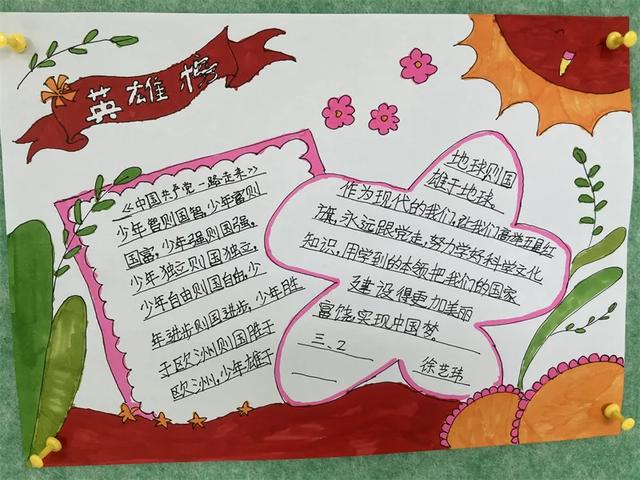 英雄榜
《中国共产党一路走来》
少年智则国智,少年富则
国富,少年强则国强,
少年独立则国独立,
少年自由则国自由,少
年进步则国进步,少年胜
于欧洲则国胜于
欧洲,少年雄于
地球则国
雄于地球
作为现代的我们,让我们高举五星红
旗,永远跟党走,努力学好科学文化
知识,用学到的本领把我们的国家
建设得更加美丽
富饶,实现中国梦。
三、2
徐艺玮